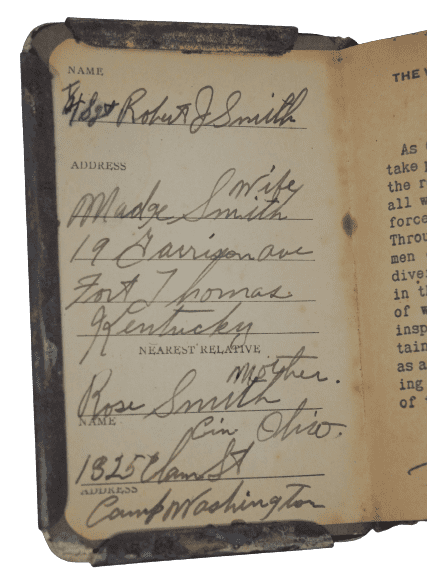 NAME
T/Sgt Robert J Smith
ADDRESS
Wife
Madge Smith
19 Garrison ave
Fort Thomas
Kentucky
NEAREST RELATIVE
Mother.
Rose Smith
NAME
Cin Ohio.
1325 St
ADDRESS
Camp Washington
THE
As
take
the
all
force
Throu
men
dive
in
of
insp
tain
as
ing
of